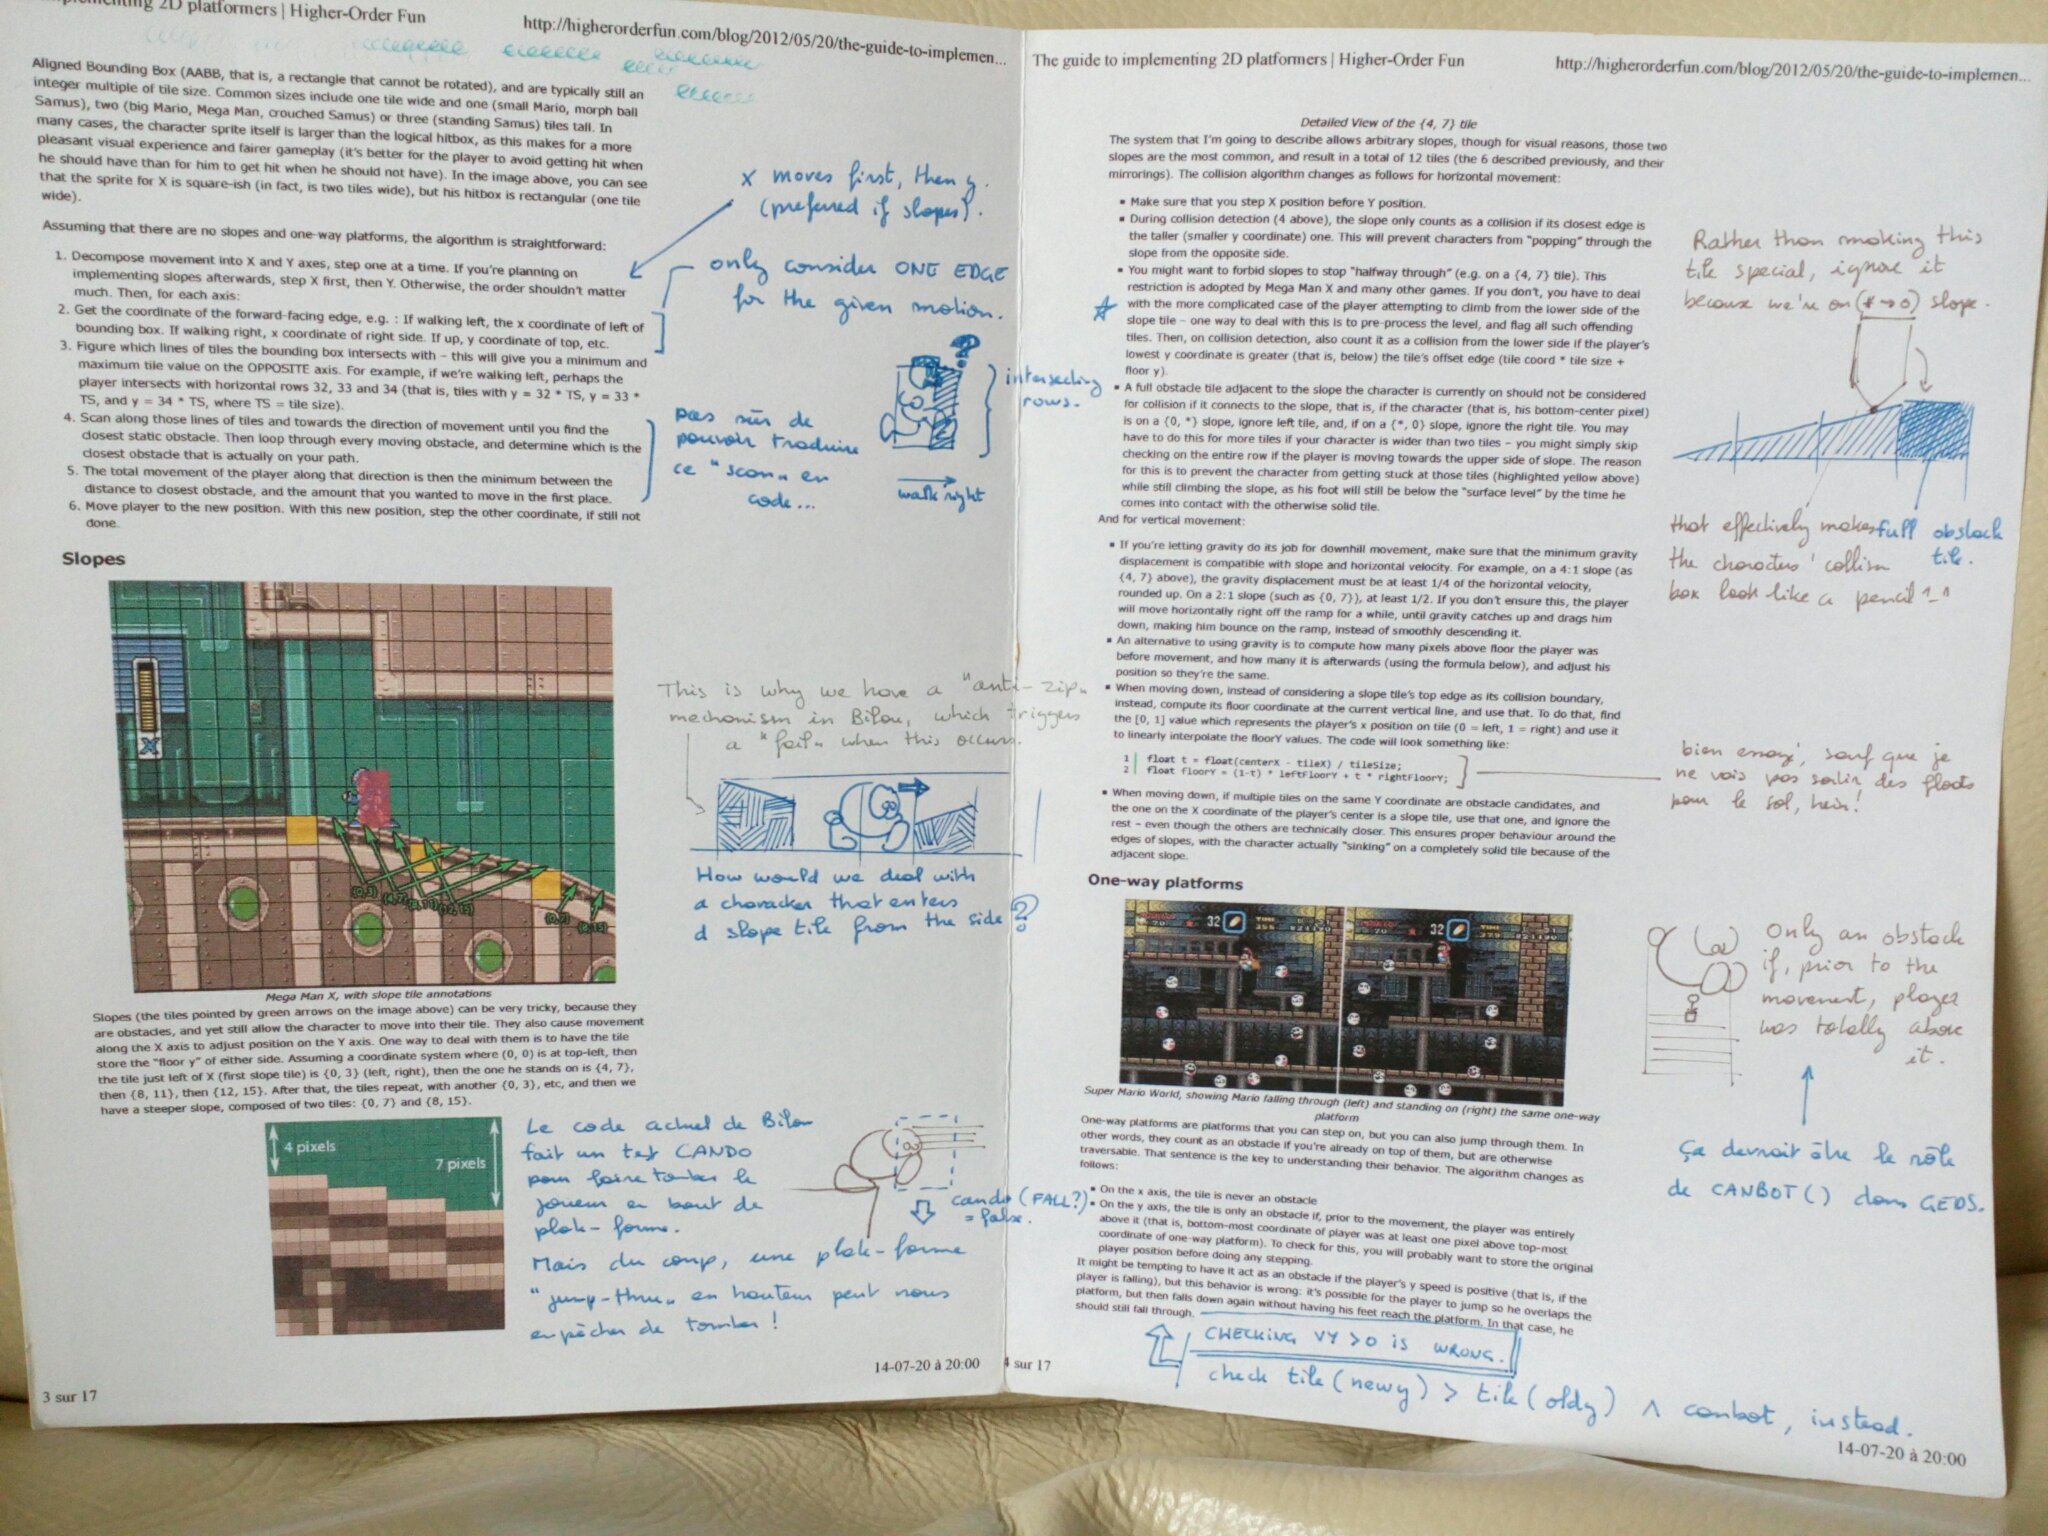 implementing 2D platformers | Higher-Order Fun
http://higherorderfun.com/blog/2012/05/20/the-guide-to-implemen...
Aligned Bounding Box (AABB, that is, a rectangle that cannot be rotated), and are typically still an
integer multiple of tile size. Common sizes include one tile wide and one (small Mario, morph ball
Samus), two (big Mario, Mega Man, crouched Samus) or three (standing Samus) tiles tall. In
many cases, the character sprite itself is larger than the logical hitbox, as this makes for a more
pleasant visual experience and fairer gameplay (it's better for the player to avoid getting hit when
he should have than for him to get hit when he should not have). In the image above, you can see
that the sprite for X is square-ish (in fact, is two tiles wide), but his hitbox is rectangular (one tile
wide).
Assuming that there are no slopes and one-way platforms, the algorithm is straightforward:
1. Decompose movement into X and Y axes, step one at a time. If you're planning on
implementing slopes afterwards, step X first, then Y. Otherwise, the order shouldn't matter
much. Then, for each axis:
2. Get the coordinate of the forward-facing edge, e.g. : If walking left, the x coordinate of left of
bounding box. If walking right, x coordinate of right side. If up, y coordinate of top, etc.
3. Figure which lines of tiles the bounding box intersects with – this will give you a minimum and
maximum tile value on the OPPOSITE axis. For example, if we're walking left, perhaps the
player intersects with horizontal rows 32, 33 and 34 (that is, tiles with y = 32 * TS, y = 33 *
TS, and y = 34 * TS, where TS = tile size).
4. Scan along those lines of tiles and towards the direction of movement until you find the
closest static obstacle. Then loop through every moving obstacle, and determine which is the
closest obstacle that is actually on your path.
5. The total movement of the player along that direction is then the minimum between the
distance to closest obstacle, and the amount that you wanted to move in the first place.
6. Move player to the new position. With this new position, step the other coordinate, if still not
done.
x moves first, then y.
(preferred if slopes).
only consider ONE EDGE
for the given motion.
?
intersecting
rows.
pas sûr de
pouvoir traduire
ce "scan" en
code...
walk right
Slopes
X
{0,3} {4,7} {8,11} {12,15} {0,7} {8,15}
Mega Man X, with slope tile annotations
This is why we have a "anti-zip"
mechanism in Bilou, which triggers
a "fail" when this occurs.
How would we deal with
a character that enters
a slope tile from the side ?
Slopes (the tiles pointed by green arrows on the image above) can be very tricky, because they
are obstacles, and yet still allow the character to move into their tile. They also cause movement
along the X axis to adjust position on the Y axis. One way to deal with them is to have the tile
store the "floor y" of either side. Assuming a coordinate system where (0, 0) is at top-left, then
the tile just left of X (first slope tile) is {0, 3} (left, right), then the one he stands on is {4, 7},
then {8, 11}, then {12, 15}. After that, the tiles repeat, with another {0, 3}, etc, and then we
have a steeper slope, composed of two tiles: {0, 7} and {8, 15}.
4 pixels
7 pixels
Le code actuel de Bilou
fait un test CANDO
pour faire tomber le
joueur en bout de
plate-forme.
Mais du coup, une plate-forme
"jump-thru" en hauteur peut nous
empêcher de tomber !
cando (FALL?)
= false.
14-07-20 à 20:00
3 sur 17
The guide to implementing 2D platformers | Higher-Order Fun
http://higherorderfun.com/blog/2012/05/20/the-guide-to-implemen...
Detailed View of the {4, 7} tile
The system that I'm going to describe allows arbitrary slopes, though for visual reasons, those two
slopes are the most common, and result in a total of 12 tiles (the 6 described previously, and their
mirrorings). The collision algorithm changes as follows for horizontal movement:
▪ Make sure that you step X position before Y position.
▪ During collision detection (4 above), the slope only counts as a collision if its closest edge is
the taller (smaller y coordinate) one. This will prevent characters from "popping" through the
slope from the opposite side.
▪ You might want to forbid slopes to stop "halfway through" (e.g. on a {4, 7} tile). This
restriction is adopted by Mega Man X and many other games. If you don't, you have to deal
with the more complicated case of the player attempting to climb from the lower side of the
slope tile – one way to deal with this is to pre-process the level, and flag all such offending
tiles. Then, on collision detection, also count it as a collision from the lower side if the player's
lowest y coordinate is greater (that is, below) the tile's offset edge (tile coord * tile size +
floor y).
▪ A full obstacle tile adjacent to the slope the character is currently on should not be considered
for collision if it connects to the slope, that is, if the character (that is, his bottom-center pixel)
is on a {0, *} slope, ignore left tile, and, if on a {*, 0} slope, ignore the right tile. You may
have to do this for more tiles if your character is wider than two tiles – you might simply skip
checking on the entire row if the player is moving towards the upper side of slope. The reason
for this is to prevent the character from getting stuck at those tiles (highlighted yellow above)
while still climbing the slope, as his foot will still be below the "surface level" by the time he
comes into contact with the otherwise solid tile.
And for vertical movement:
▪ If you're letting gravity do its job for downhill movement, make sure that the minimum gravity
displacement is compatible with slope and horizontal velocity. For example, on a 4:1 slope (as
{4, 7} above), the gravity displacement must be at least 1/4 of the horizontal velocity,
rounded up. On a 2:1 slope (such as {0, 7}), at least 1/2. If you don't ensure this, the player
will move horizontally right off the ramp for a while, until gravity catches up and drags him
down, making him bounce on the ramp, instead of smoothly descending it.
▪ An alternative to using gravity is to compute how many pixels above floor the player was
before movement, and how many it is afterwards (using the formula below), and adjust his
position so they're the same.
▪ When moving down, instead of considering a slope tile's top edge as its collision boundary,
instead, compute its floor coordinate at the current vertical line, and use that. To do that, find
the [0, 1] value which represents the player's x position on tile (0 = left, 1 = right) and use it
to linearly interpolate the floorY values. The code will look something like:
1 float t = float(centerX - tileX) / tileSize;
2 float floorY = (1-t) * leftFloorY + t * rightFloorY;
▪ When moving down, if multiple tiles on the same Y coordinate are obstacle candidates, and
the one on the X coordinate of the player's center is a slope tile, use that one, and ignore the
rest – even though the others are technically closer. This ensures proper behaviour around the
edges of slopes, with the character actually "sinking" on a completely solid tile because of the
adjacent slope.
Rather than making this
tile special, ignore it
because we're on (*→0) slope.
that effectively makes
the characters' collision
box look like a pencil ^_^
full obstack
tile.
bien essayé, sauf que je
ne vais pas sortir des floats
pour le sol, hein!
One-way platforms
32
32
Super Mario World, showing Mario falling through (left) and standing on (right) the same one-way
platform
Only an obstack
if, prior to the
movement, player
was totally above
it.
Ça devrait être le rôle
de CANBOT() dans GEDS.
One-way platforms are platforms that you can step on, but you can also jump through them. In
other words, they count as an obstacle if you're already on top of them, but are otherwise
traversable. That sentence is the key to understanding their behavior. The algorithm changes as
follows:
▪ On the x axis, the tile is never an obstacle
▪ On the y axis, the tile is only an obstacle if, prior to the movement, the player was entirely
above it (that is, bottom-most coordinate of player was at least one pixel above top-most
coordinate of one-way platform). To check for this, you will probably want to store the original
player position before doing any stepping.
It might be tempting to have it act as an obstacle if the player's y speed is positive (that is, if the
player is falling), but this behavior is wrong: it's possible for the player to jump so he overlaps the
platform, but then falls down again without having his feet reach the platform. In that case, he
should still fall through.
CHECKING VY > 0 is WRONG.
check tile (newy) > tile (oldy) ∧ canbot, instead.
4 sur 17
14-07-20 à 20:00